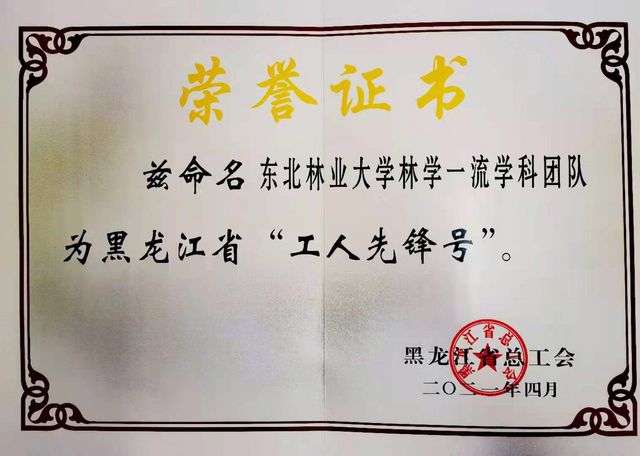 荣誉证书
兹命名东北林业大学林学一流学科团队
为黑龙江省“工人先锋号”。
黑龙江省总工会
二〇二一年四月
黑龙江省总工会